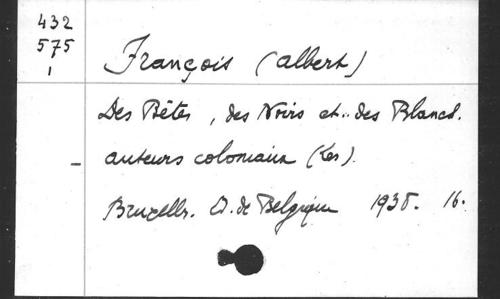 432
575
1
François (Albert)
Des Bêtes, des Noirs et.. des Blancs.
auteurs coloniaux (Les).
Bruxelles. Ed. de Belgique 1938. 16.